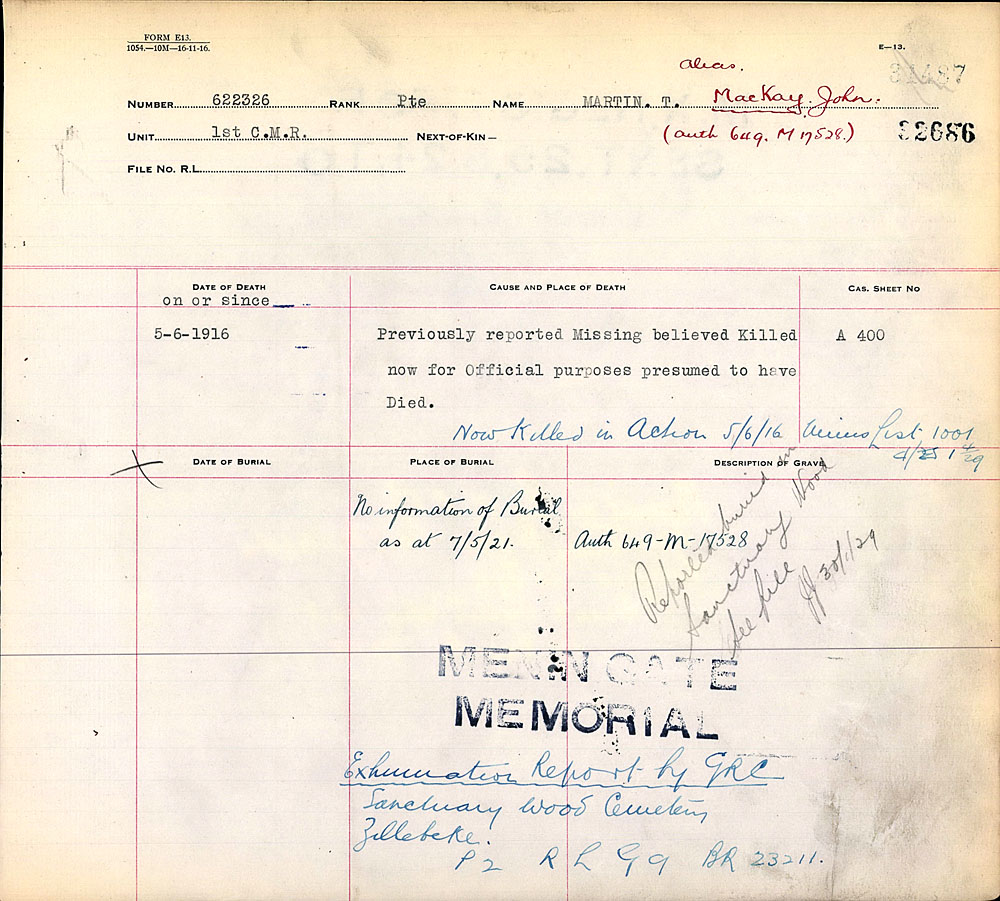 FORM E13.
1054.—10M—16-11-16.
E—13.
alias.
NUMBER 622326 RANK Pte NAME MARTIN. T. MacKay. John.
UNIT 1st C.M.R. NEXT-OF-KIN— (Auth 649. M 17528.) 32686
FILE NO. R.L.
DATE OF DEATH CAUSE AND PLACE OF DEATH CAS. SHEET NO
on or since
5-6-1916 Previously reported Missing believed Killed A 400
now for Official purposes presumed to have
Died.
Now Killed in Action 5/6/16 List 1001
DATE OF BURIAL PLACE OF BURIAL DESCRIPTION OF GRAVE
No information of Burial
as at 7/5/21. Auth 649-M-17528
Reported buried in
Sanctuary Wood
See file
30/1/29
MENIN GATE
MEMORIAL
Exhumation Report by GRC
Sanctuary Wood Cemetery
Zillebeke.
P 2 R L G 9 BR 23211.